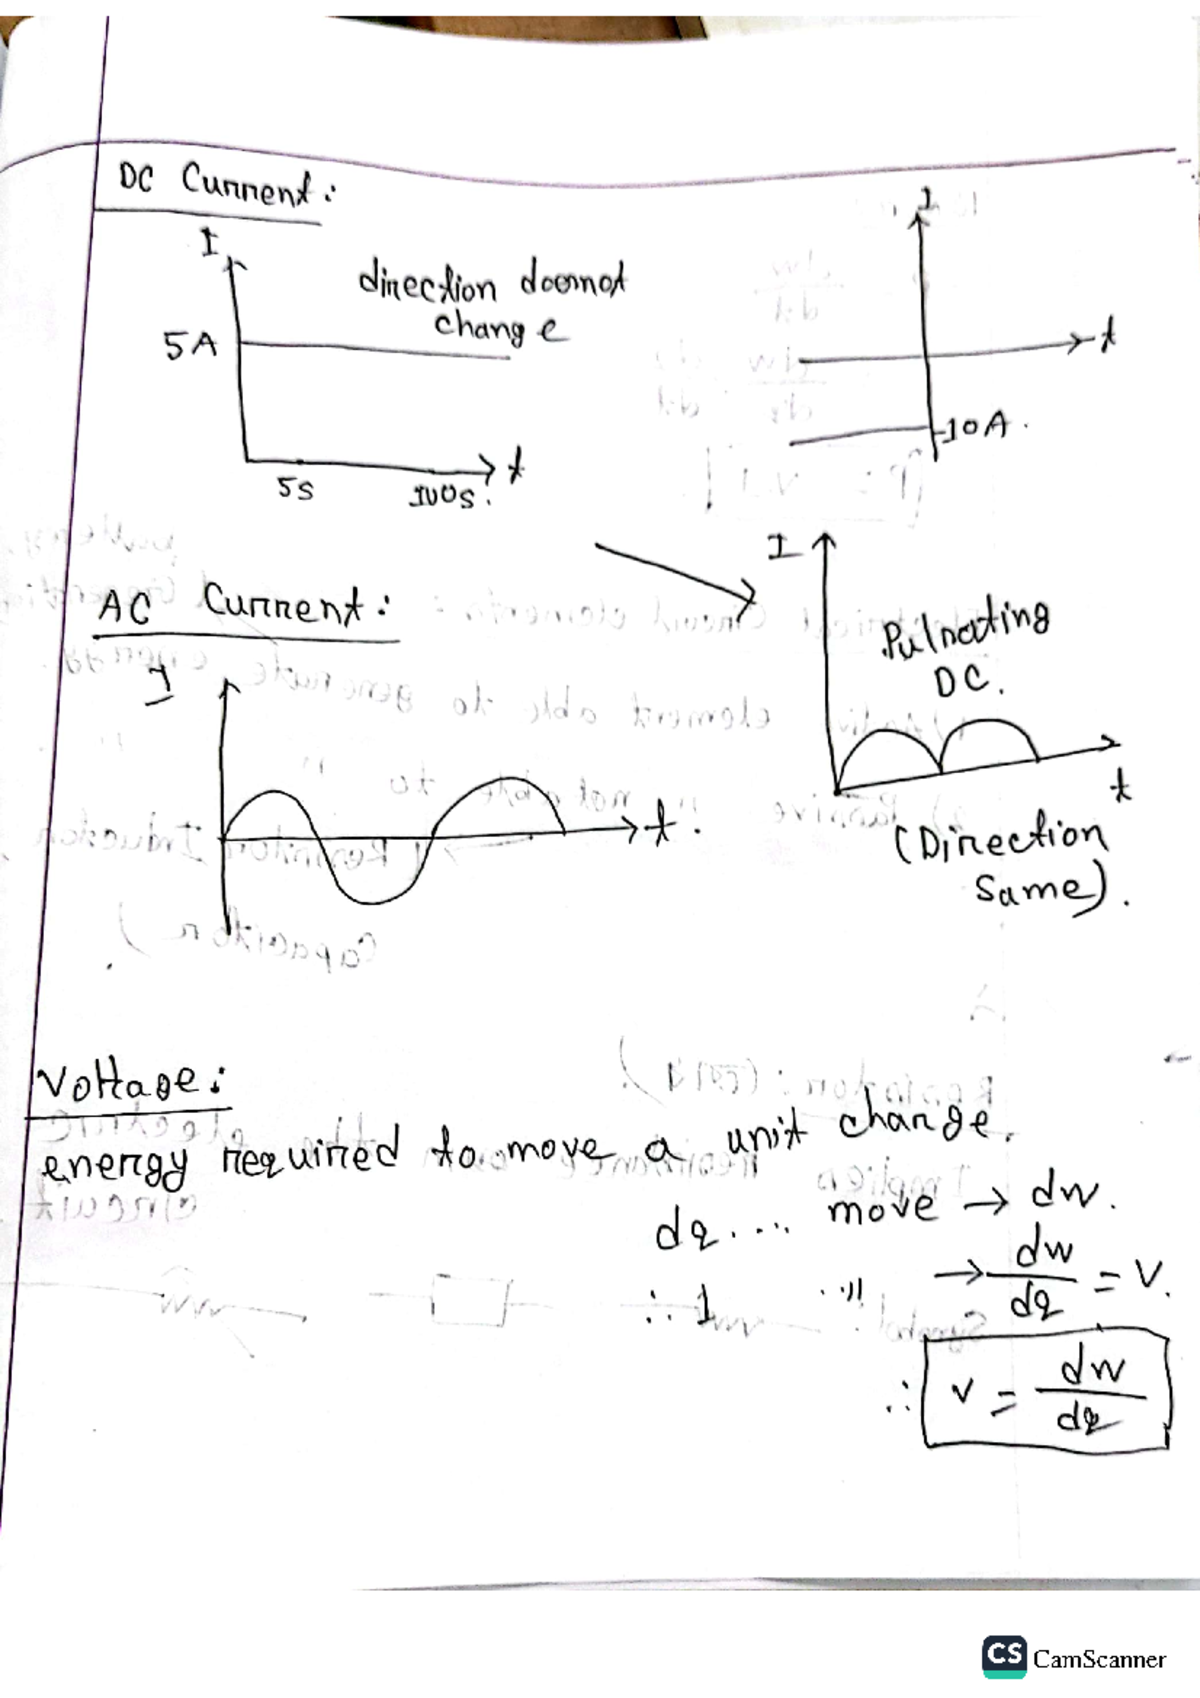 DC Current:
I
direction doesnot
change
5A
t
5s
100s.
I
t
-10A.
I
Pulsating
DC.
t
(Direction
Same).
AC Current:
I
t.
Voltage:
energy required to move a unit charge.
dq.... move → dw.
∴ 1 ..," → dw/dq = V.
∴ V = dw/dq
CS CamScanner